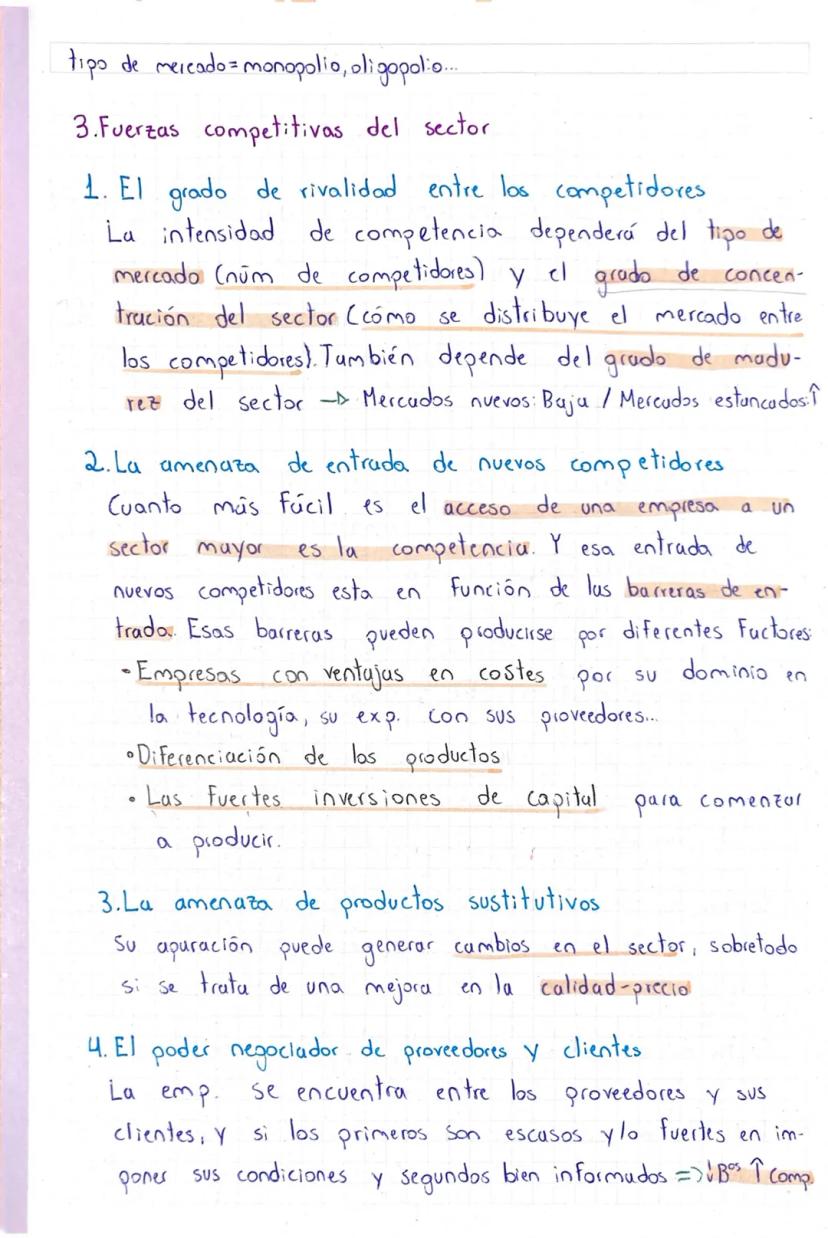 tipo de mercado = monopolio, oligopolio...
3. Fuerzas competitivas del sector
1. El grado de rivalidad entre los competidores
La intensidad de competencia dependerá del tipo de
mercado (núm de competidores) y el grado de concen-
tración del sector (cómo se distribuye el mercado entre
los competidores). También depende del grado de madu-
rez del sector → Mercados nuevos: Baja / Mercados estancados: ↑
2. La amenaza de entrada de nuevos competidores
Cuanto más fácil es el acceso de una empresa a un
sector mayor es la competencia. Y esa entrada de
nuevos competidores esta en función de las barreras de en-
trada. Esas barreras pueden producirse por diferentes factores:
• Empresas con ventajas en costes por su dominio en
la tecnología, su exp. con sus proveedores...
• Diferenciación de los productos
• Las fuertes inversiones de capital para comenzar
a producir.
3. La amenaza de productos sustitutivos
Su aparación puede generar cambios en el sector, sobretodo
si se trata de una mejora en la calidad-precio
4. El poder negociador de proveedores y clientes
La emp. se encuentra entre los proveedores y sus
clientes, y si los primeros son escasos y/o fuertes en im-
poner sus condiciones y segundos bien informados => ↓Bºs ↑ comp.